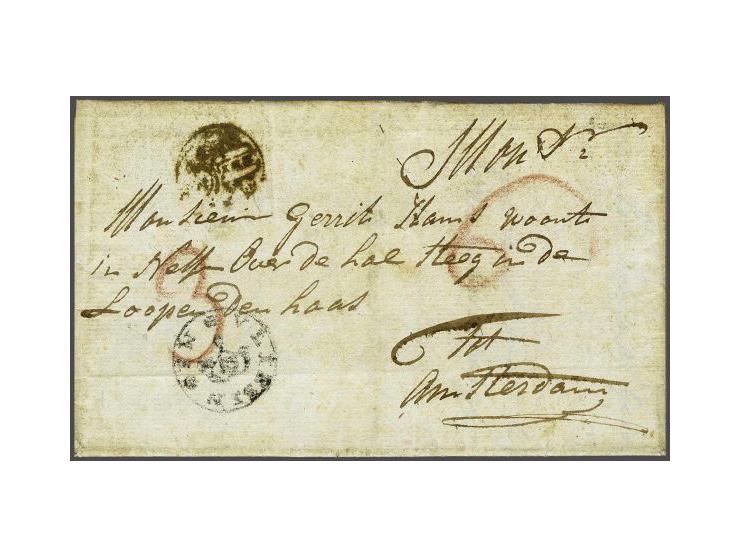 Mons.r
Monsieur Gerrit Hams woont
in Ness Over de hal steeg in de
Loopenden haas
3
tot
Amsterdam